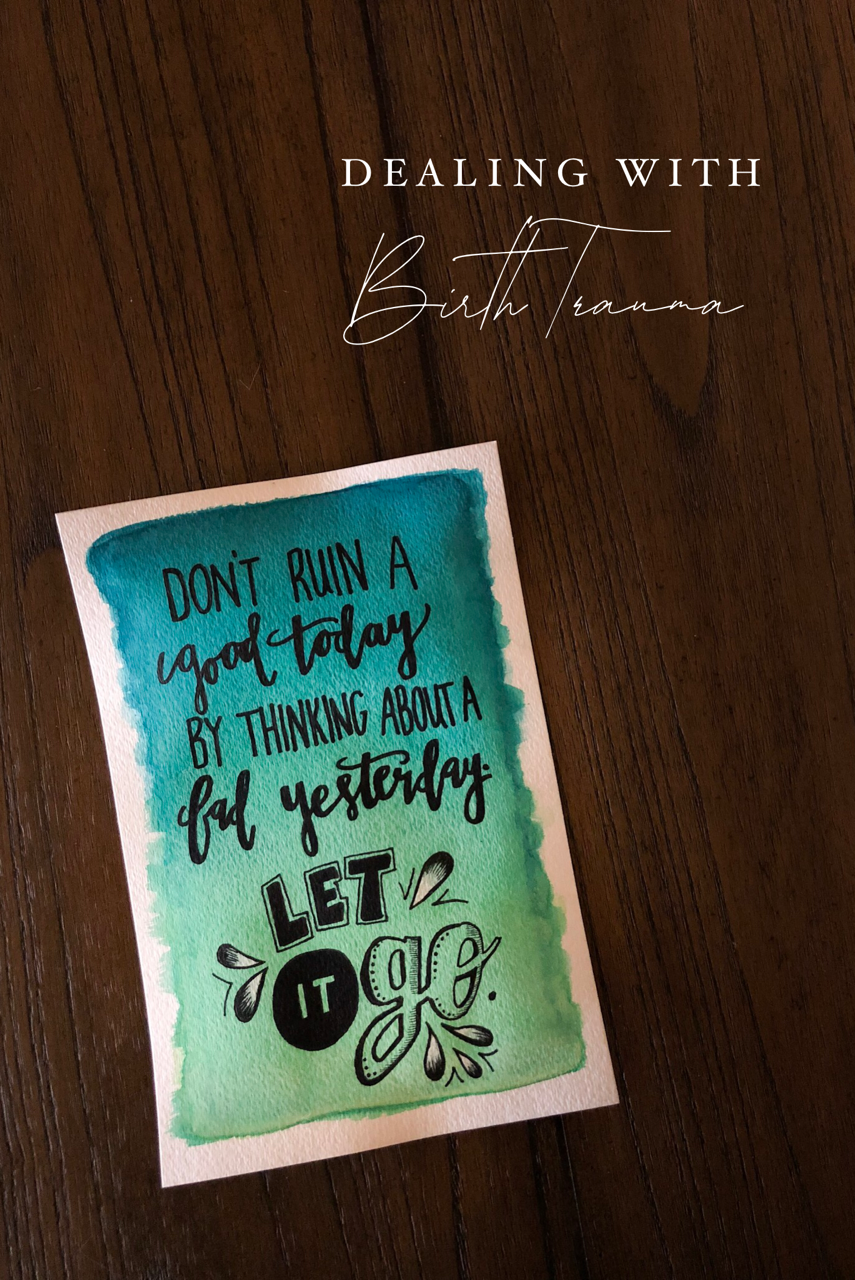 DEALING WITH
Birth Trauma
DON'T RUIN A
good today
BY THINKING ABOUT A
bad yesterday.
LET
IT go.